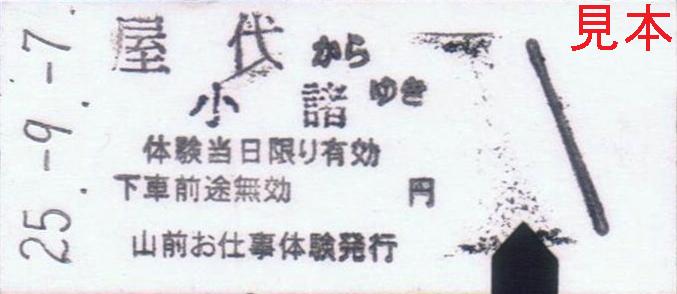 見本
25.-9.-7.
屋代から
小諸ゆき
体験当日限り有効
下車前途無効 円
山前お仕事体験発行